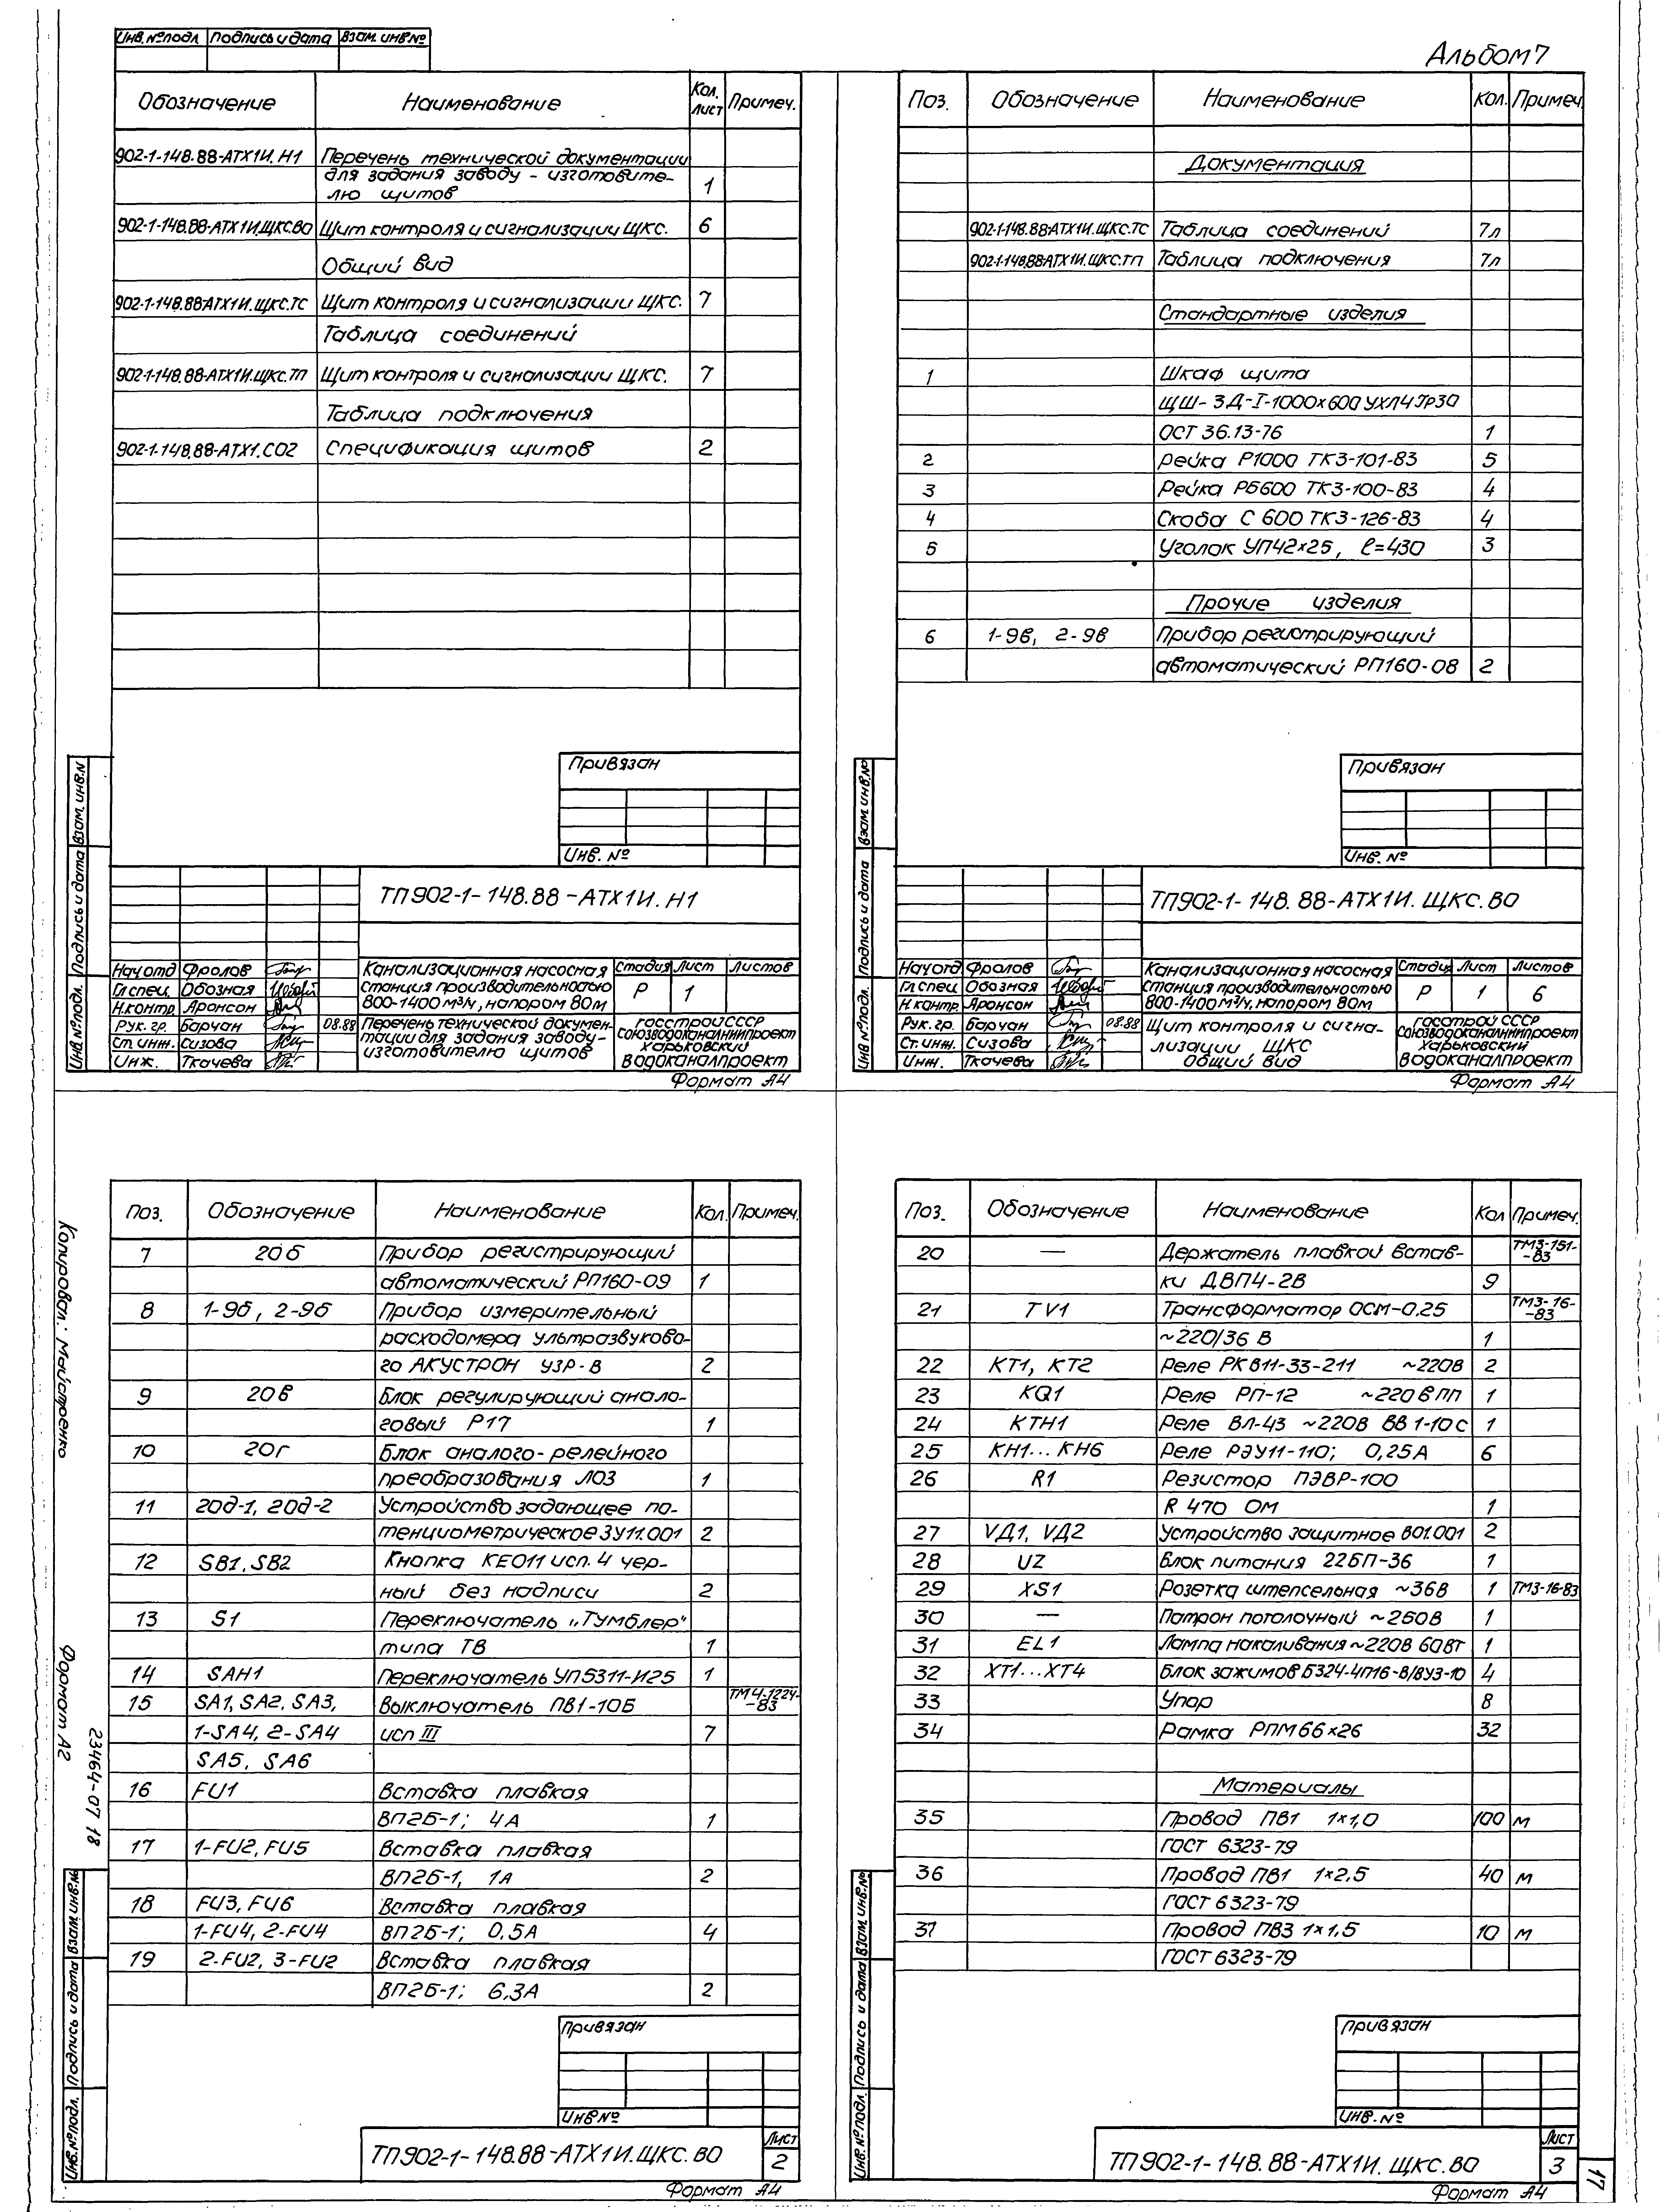 Инв.№подл Подпись и дата Взам. инв№
Альбом 7
Обозначение Наименование Кол. лист Примеч.
902-1-148.88-АТХ1И.Н1 Перечень технической документации
для задания заводу - изготовите-
лю щитов 1
902-1-148.88-АТХ1И.ЩКС.ВО Щит контроля и сигнализации ЩКС. 6
Общий вид
902-1-148.88-АТХ1И.ЩКС.ТС Щит контроля и сигнализации ЩКС. 7
Таблица соединений
902-1-148.88-АТХ1И.ЩКС.ТП Щит контроля и сигнализации ЩКС. 7
Таблица подключения
902-1-148.88-АТХ1.СО2 Спецификация щитов 2
Привязан
Инв. №
ТП902-1-148.88-АТХ1И.Н1
Нач отд Фролов
Гл спец. Обозная
Н.контр. Аронсон
Рук. гр. Барчан 08.88
Ст. инж. Сизова
Инж. Ткачева
Канализационная насосная
станция производительностью
800-1400 м³/ч, напором 80м
Стадия Лист Листов
Р 1
Перечень технической докумен-
тации для задания заводу-
изготовителю щитов
Госстрой СССР
Союзводоканалниипроект
Харьковский
Водоканалпроект
Формат А4
Инв №подл. Подпись и дата Взам. инв.№
Поз. Обозначение Наименование Кол. Примеч.
Документация
902-1-148.88-АТХ1И.ЩКС.ТС Таблица соединений 7л
902-1-148.88-АТХ1И.ЩКС.ТП Таблица подключения 7л
Стандартные изделия
1 Шкаф щита
ЩШ-3Д-I-1000х600 УХЛ4 IP30
ОСТ 36.13-76 1
2 Рейка Р1000 ТК3-101-83 5
3 Рейка РБ600 ТК3-100-83 4
4 Скоба С 600 ТК3-126-83 4
5 Уголок УП42х25, ℓ=430 3
Прочие изделия
6 1-9в, 2-9в Прибор регистрирующий
автоматический РП160-08 2
Привязан
Инв. №
ТП902-1-148.88-АТХ1И.ЩКС.ВО
Нач отд Фролов
Гл спец Обозная
Н.контр. Аронсон
Рук. гр. Барчан 08.88
Ст. инж. Сизова
Инж. Ткачева
Канализационная насосная
станция производительностью
800-1400 м³/ч, напором 80м
Стадия Лист Листов
Р 1 6
Щит контроля и сигна-
лизации ЩКС
Общий вид
Госстрой СССР
Союзводоканалниипроект
Харьковский
Водоканалпроект
Формат А4
Инв №подл. Подпись и дата Взам. инв.№
Поз. Обозначение Наименование Кол. Примеч.
7 20б Прибор регистрирующий
автоматический РП160-09 1
8 1-9б, 2-9б Прибор измерительный
расходомера ультразвуково-
го АКУСТРОН УЗР-В 2
9 20в Блок регулирующий анало-
говый Р17 1
10 20г Блок аналого-релейного
преобразования Л03 1
11 20д-1, 20д-2 Устройство задающее по-
тенциометрическое ЗУ11.001 2
12 SB1, SB2 Кнопка КЕ011 исп. 4 чер-
ный без надписи 2
13 S1 Переключатель „Тумблер"
типа ТВ 1
14 SAH1 Переключатель УП5311-И25 1
15 SA1, SA2, SA3, Выключатель ПВ1-10Б ТМ4-1224-
-83
1-SA4, 2-SA4 исп III 7
SA5, SA6
16 FU1 Вставка плавкая
ВП2Б-1; 4А 1
17 1-FU2, FU5 Вставка плавкая
ВП2Б-1, 1А 2
18 FU3, FU6 Вставка плавкая
1-FU4, 2-FU4 ВП2Б-1; 0,5А 4
19 2-FU2, 3-FU2 Вставка плавкая
ВП2Б-1; 6,3А 2
Привязан
Инв №
ТП902-1-148.88-АТХ1И.ЩКС.ВО
Лист
2
Формат А4
Копировал: Майстренко
Формат А2
23464-07 18
Инв.№подл. Подпись и дата Взам.инв.№
Поз. Обозначение Наименование Кол Примеч.
20 — Держатель плавкой встав- ТМ3-151-
-83
ки ДВП4-2В 9
21 TV1 Трансформатор ОСМ-0,25 ТМ3-16-
-83
~220/36 В 1
22 КТ1, КТ2 Реле РКВ11-33-211 ~220В 2
23 KQ1 Реле РП-12 ~220В ПП 1
24 КТН1 Реле ВЛ-43 ~220В ВВ 1-10с 1
25 КН1...КН6 Реле РЭУ11-110; 0,25А 6
26 R1 Резистор ПЭВР-100
R 470 ОМ 1
27 VД1, VД2 Устройство защитное В01.001 2
28 UZ Блок питания 22БП-36 1
29 XS1 Розетка штепсельная ~36В 1 ТМ3-16-83
30 — Патрон потолочный ~250В 1
31 EL1 Лампа накаливания ~220В 60Вт 1
32 ХТ1...ХТ4 Блок зажимов БЗ24-4П16-В/ВУ3-10 4
33 Упор 8
34 Рамка РПМ 66х26 32
Материалы
35 Провод ПВ1 1х1,0 100 м
ГОСТ 6323-79
36 Провод ПВ1 1х2,5 40 м
ГОСТ 6323-79
37 Провод ПВ3 1х1,5 10 м
ГОСТ 6323-79
Привязан
Инв. №
ТП902-1-148.88-АТХ1И.ЩКС.ВО
Лист
3
Формат А4
17
Инв.№подл. Подпись и дата Взам.инв.№